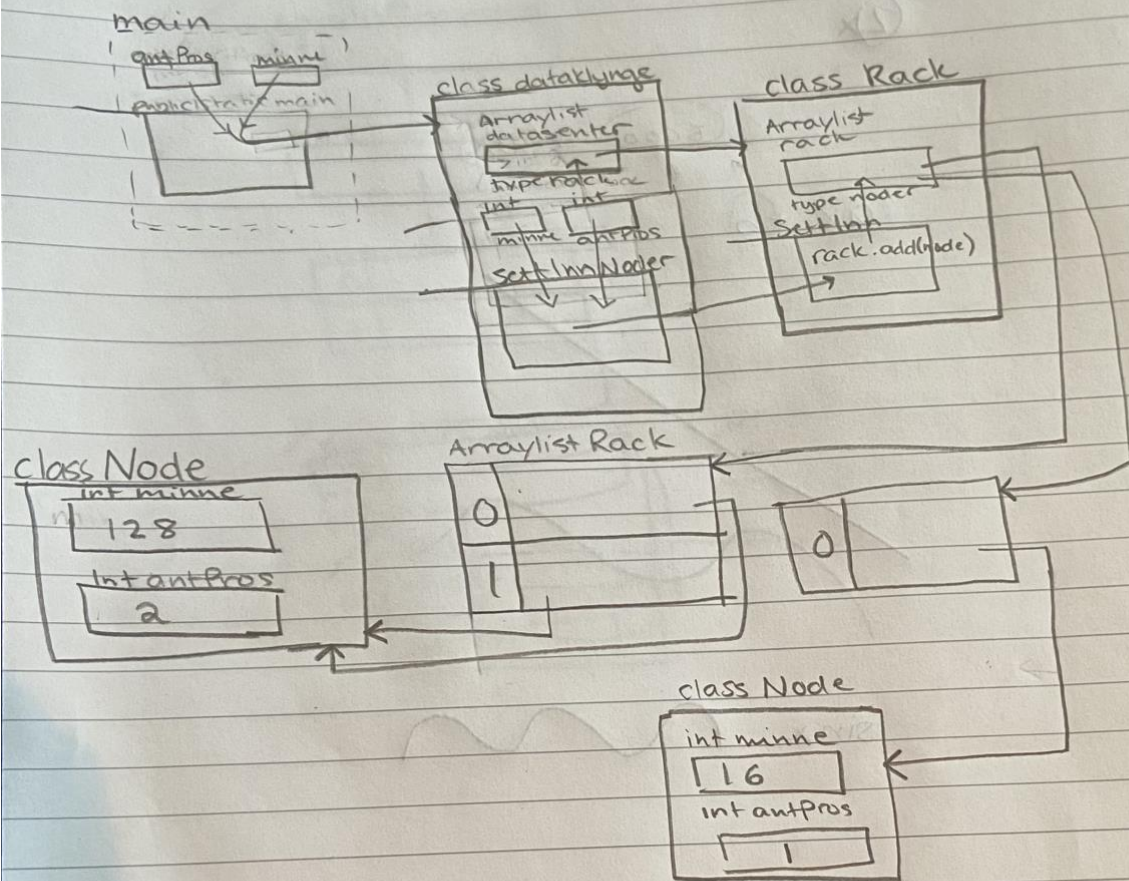 main
antPros
minne
public static main
class dataklynge
Arraylist
datasenter
type rack
int
int
minne
antPros
settInnNoder
class Rack
Arraylist
rack
type noder
SettInn
rack.add(node)
class Node
int minne
128
Int antPros
2
Arraylist Rack
0
1
0
class Node
int minne
16
int antPros
1